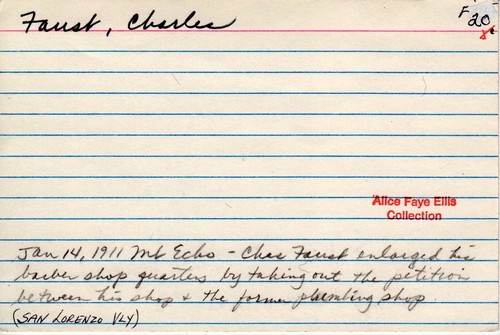 Faust, Charles
F
20
Alice Faye Ellis
Collection
Jan 14, 1911 Mt Echo - Chas Faust enlarged his
barber shop quarters by taking out the petition
between his shop & the former plumbing shop.
(SAN LORENZO VLY)